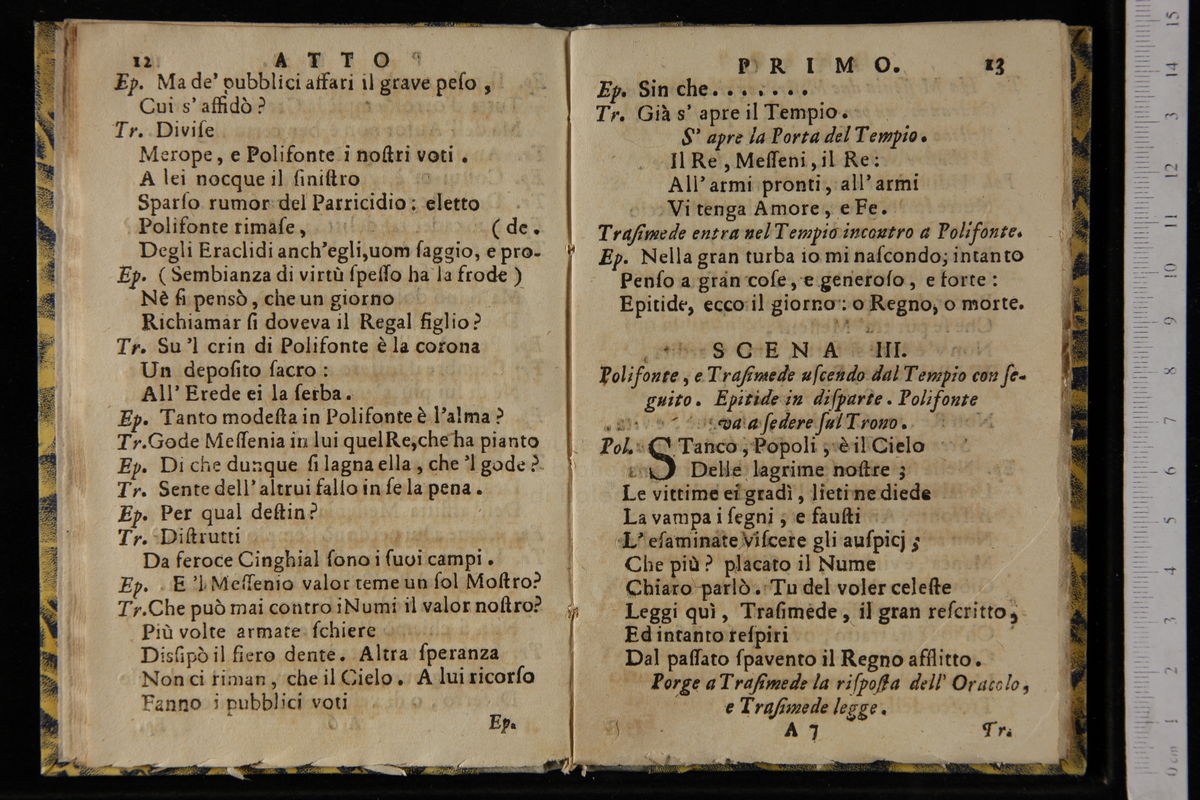 12 ATTO
Ep. Ma de' pubblici affari il grave peſo ,
Cui s' affidò ?
Tr. Diviſe
Merope , e Polifonte i noſtri voti .
A lei nocque il ſiniſtro
Sparſo rumor del Parricidio : eletto
Polifonte rimaſe , ( de .
Degli Eraclidi anch'egli,uom ſaggio, e pro-
Ep. ( Sembianza di virtù ſpeſſo ha la frode )
Nè ſi pensò , che un giorno
Richiamar ſi doveva il Regal figlio ?
Tr. Su 'l crin di Polifonte è la corona
Un depoſito ſacro :
All' Erede ei la ſerba .
Ep. Tanto modeſta in Polifonte è l'alma ?
Tr. Gode Meſſenia in lui quel Re,che ha pianto
Ep. Di che dunque ſi lagna ella , che 'l gode ?
Tr. Sente dell' altrui fallo in ſe la pena .
Ep. Per qual deſtin ?
Tr. Diſtrutti
Da feroce Cinghial ſono i ſuoi campi .
Ep. E 'l Meſſenio valor teme un ſol Moſtro?
Tr. Che può mai contro i Numi il valor noſtro?
Più volte armate ſchiere
Diſſipò il fiero dente . Altra ſperanza
Non ci riman , che il Cielo . A lui ricorſo
Fanno i pubblici voti
Ep.
PRIMO. 13
Ep. Sin che . . . . . . .
Tr. Già s' apre il Tempio .
S' apre la Porta del Tempio .
Il Re , Meſſeni , il Re :
All' armi pronti , all' armi
Vi tenga Amore , e Fe .
Traſimede entra nel Tempio incontro a Polifonte.
Ep. Nella gran turba io mi naſcondo; intanto
Penſo a gran coſe , e generoſo , e forte :
Epitide, ecco il giorno : o Regno, o morte.
SCENA III.
Polifonte , e Traſimede uſcendo dal Tempio con ſe-
guito . Epitide in diſparte . Polifonte
va a ſedere ſul Trono .
Pol. STanco , Popoli , è il Cielo
Delle lagrime noſtre ;
Le vittime ei gradì , lieti ne diede
La vampa i ſegni , e fauſti
L' eſaminate viſcere gli auſpicj ;
Che più ? placato il Nume
Chiaro parlò . Tu del voler celeſte
Leggi quì , Traſimede , il gran reſcritto ,
Ed intanto reſpiri
Dal paſſato ſpavento il Regno afflitto .
Porge a Traſimede la riſpoſta dell' Oracolo ,
e Traſimede legge .
A 7 Tr.
0 cm 1 2 3 4 5 6 7 8 9 10 11 12 3 14 15